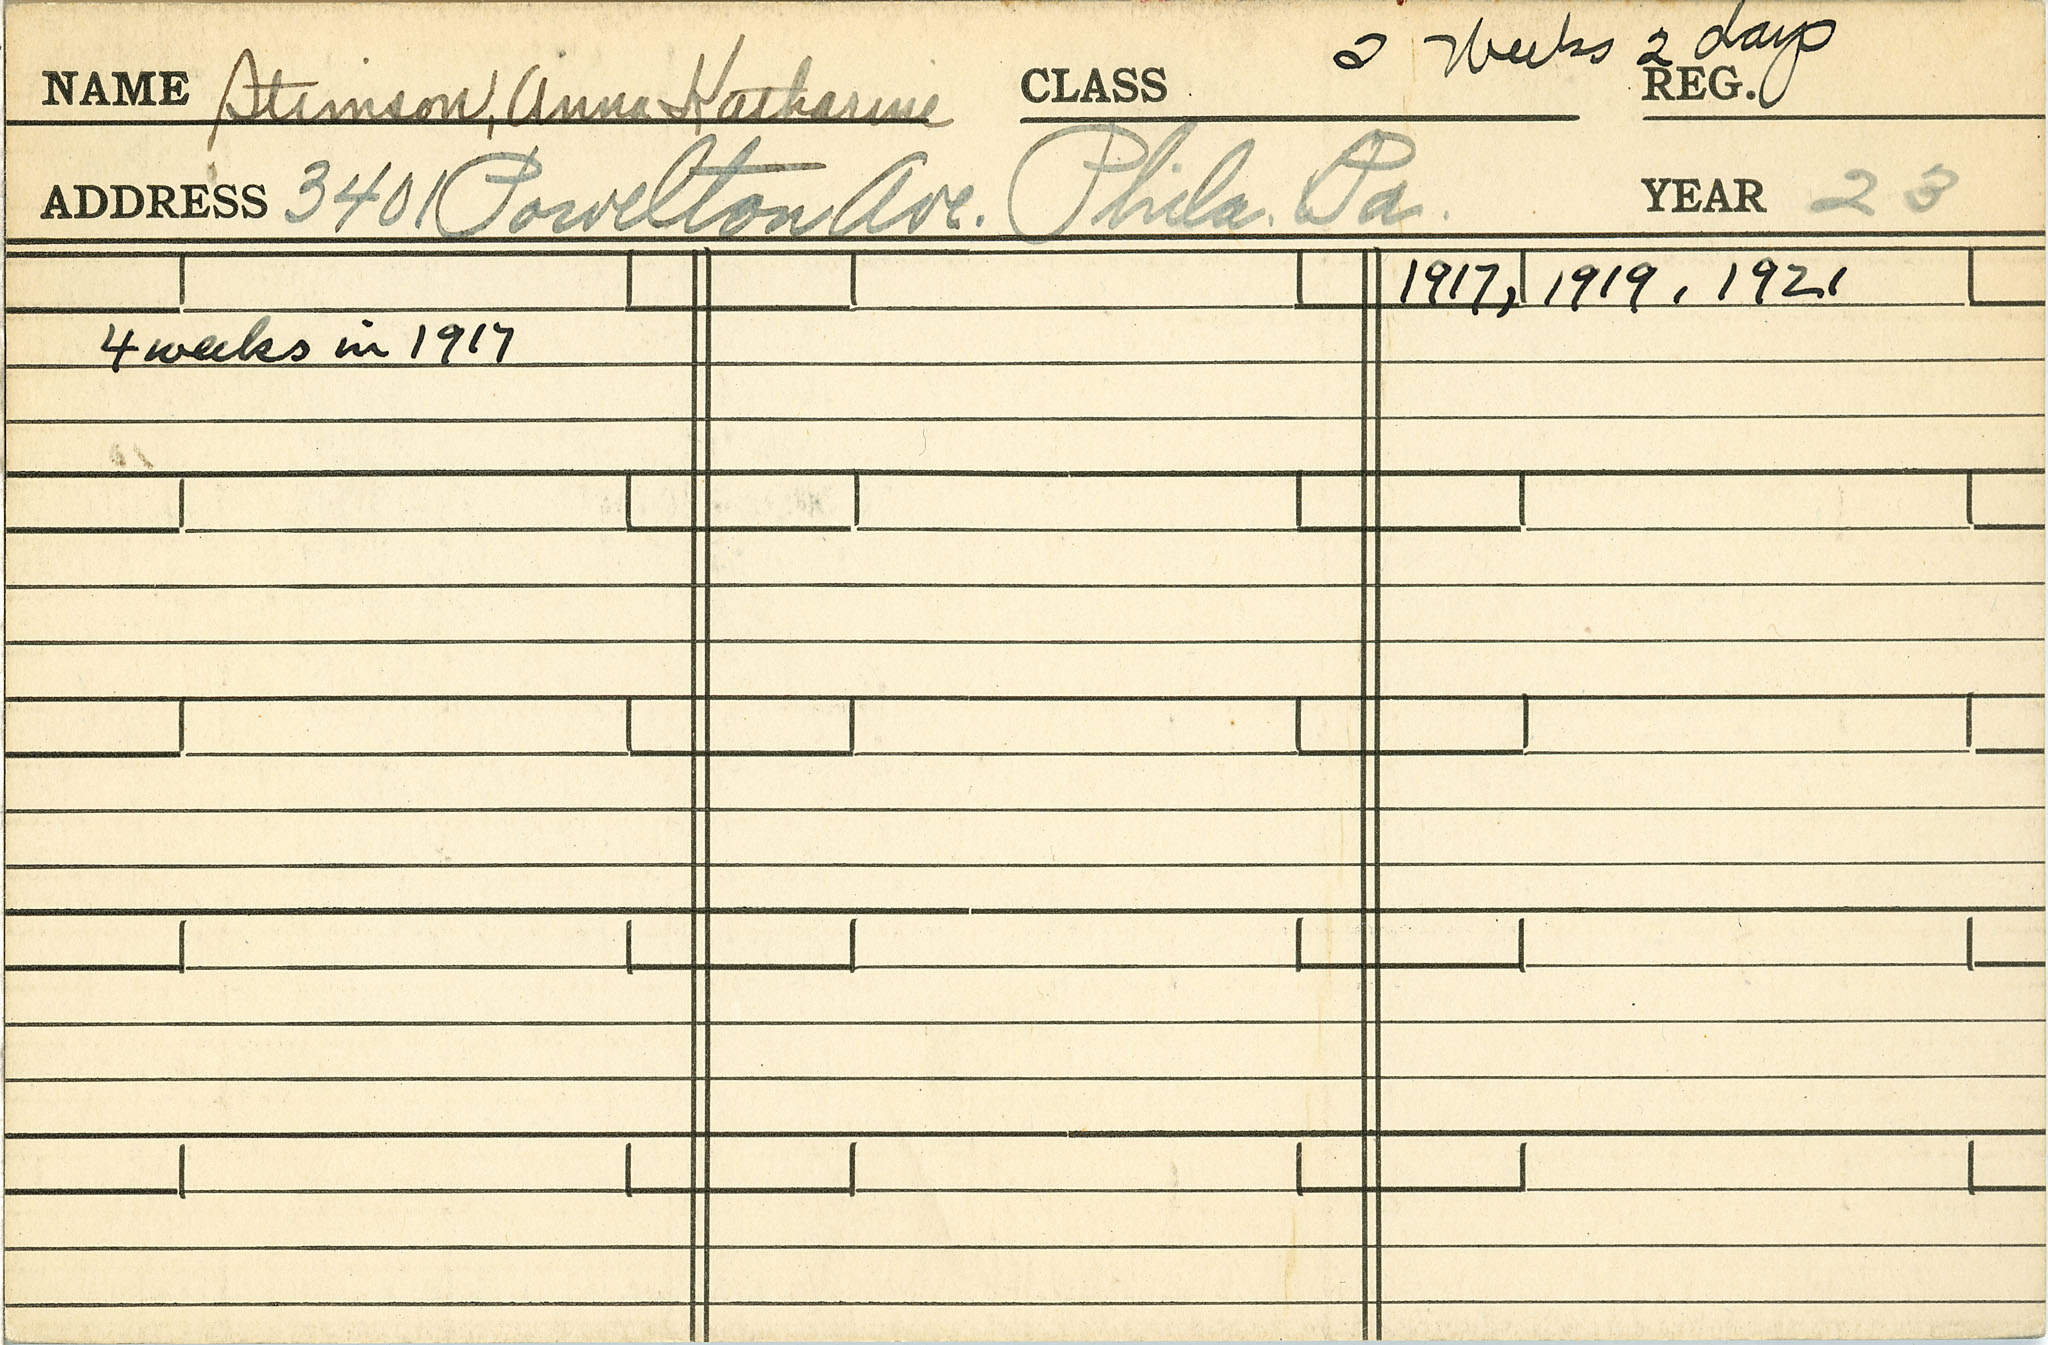 2 Weeks 2 days
NAME Stimson, Anna Katharine CLASS REG.
ADDRESS 3401 Powelton Ave. Phila. Pa. YEAR 23
1917, 1919, 1921
4 weeks in 1917